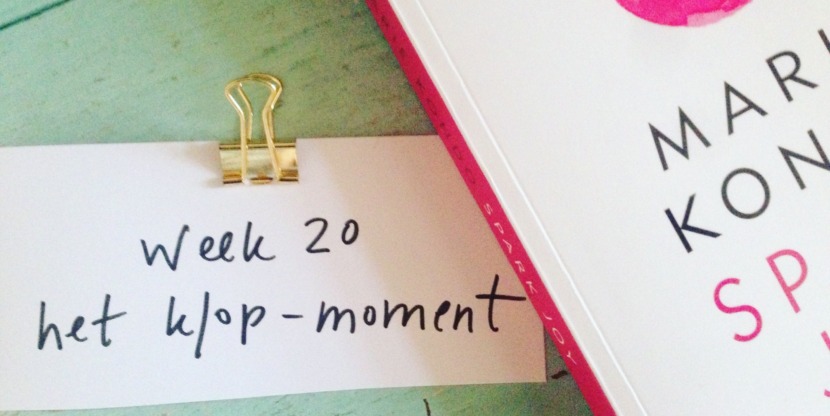 week 20
het klop-moment
MARI
KON
SP
KONDO SPARK JOY